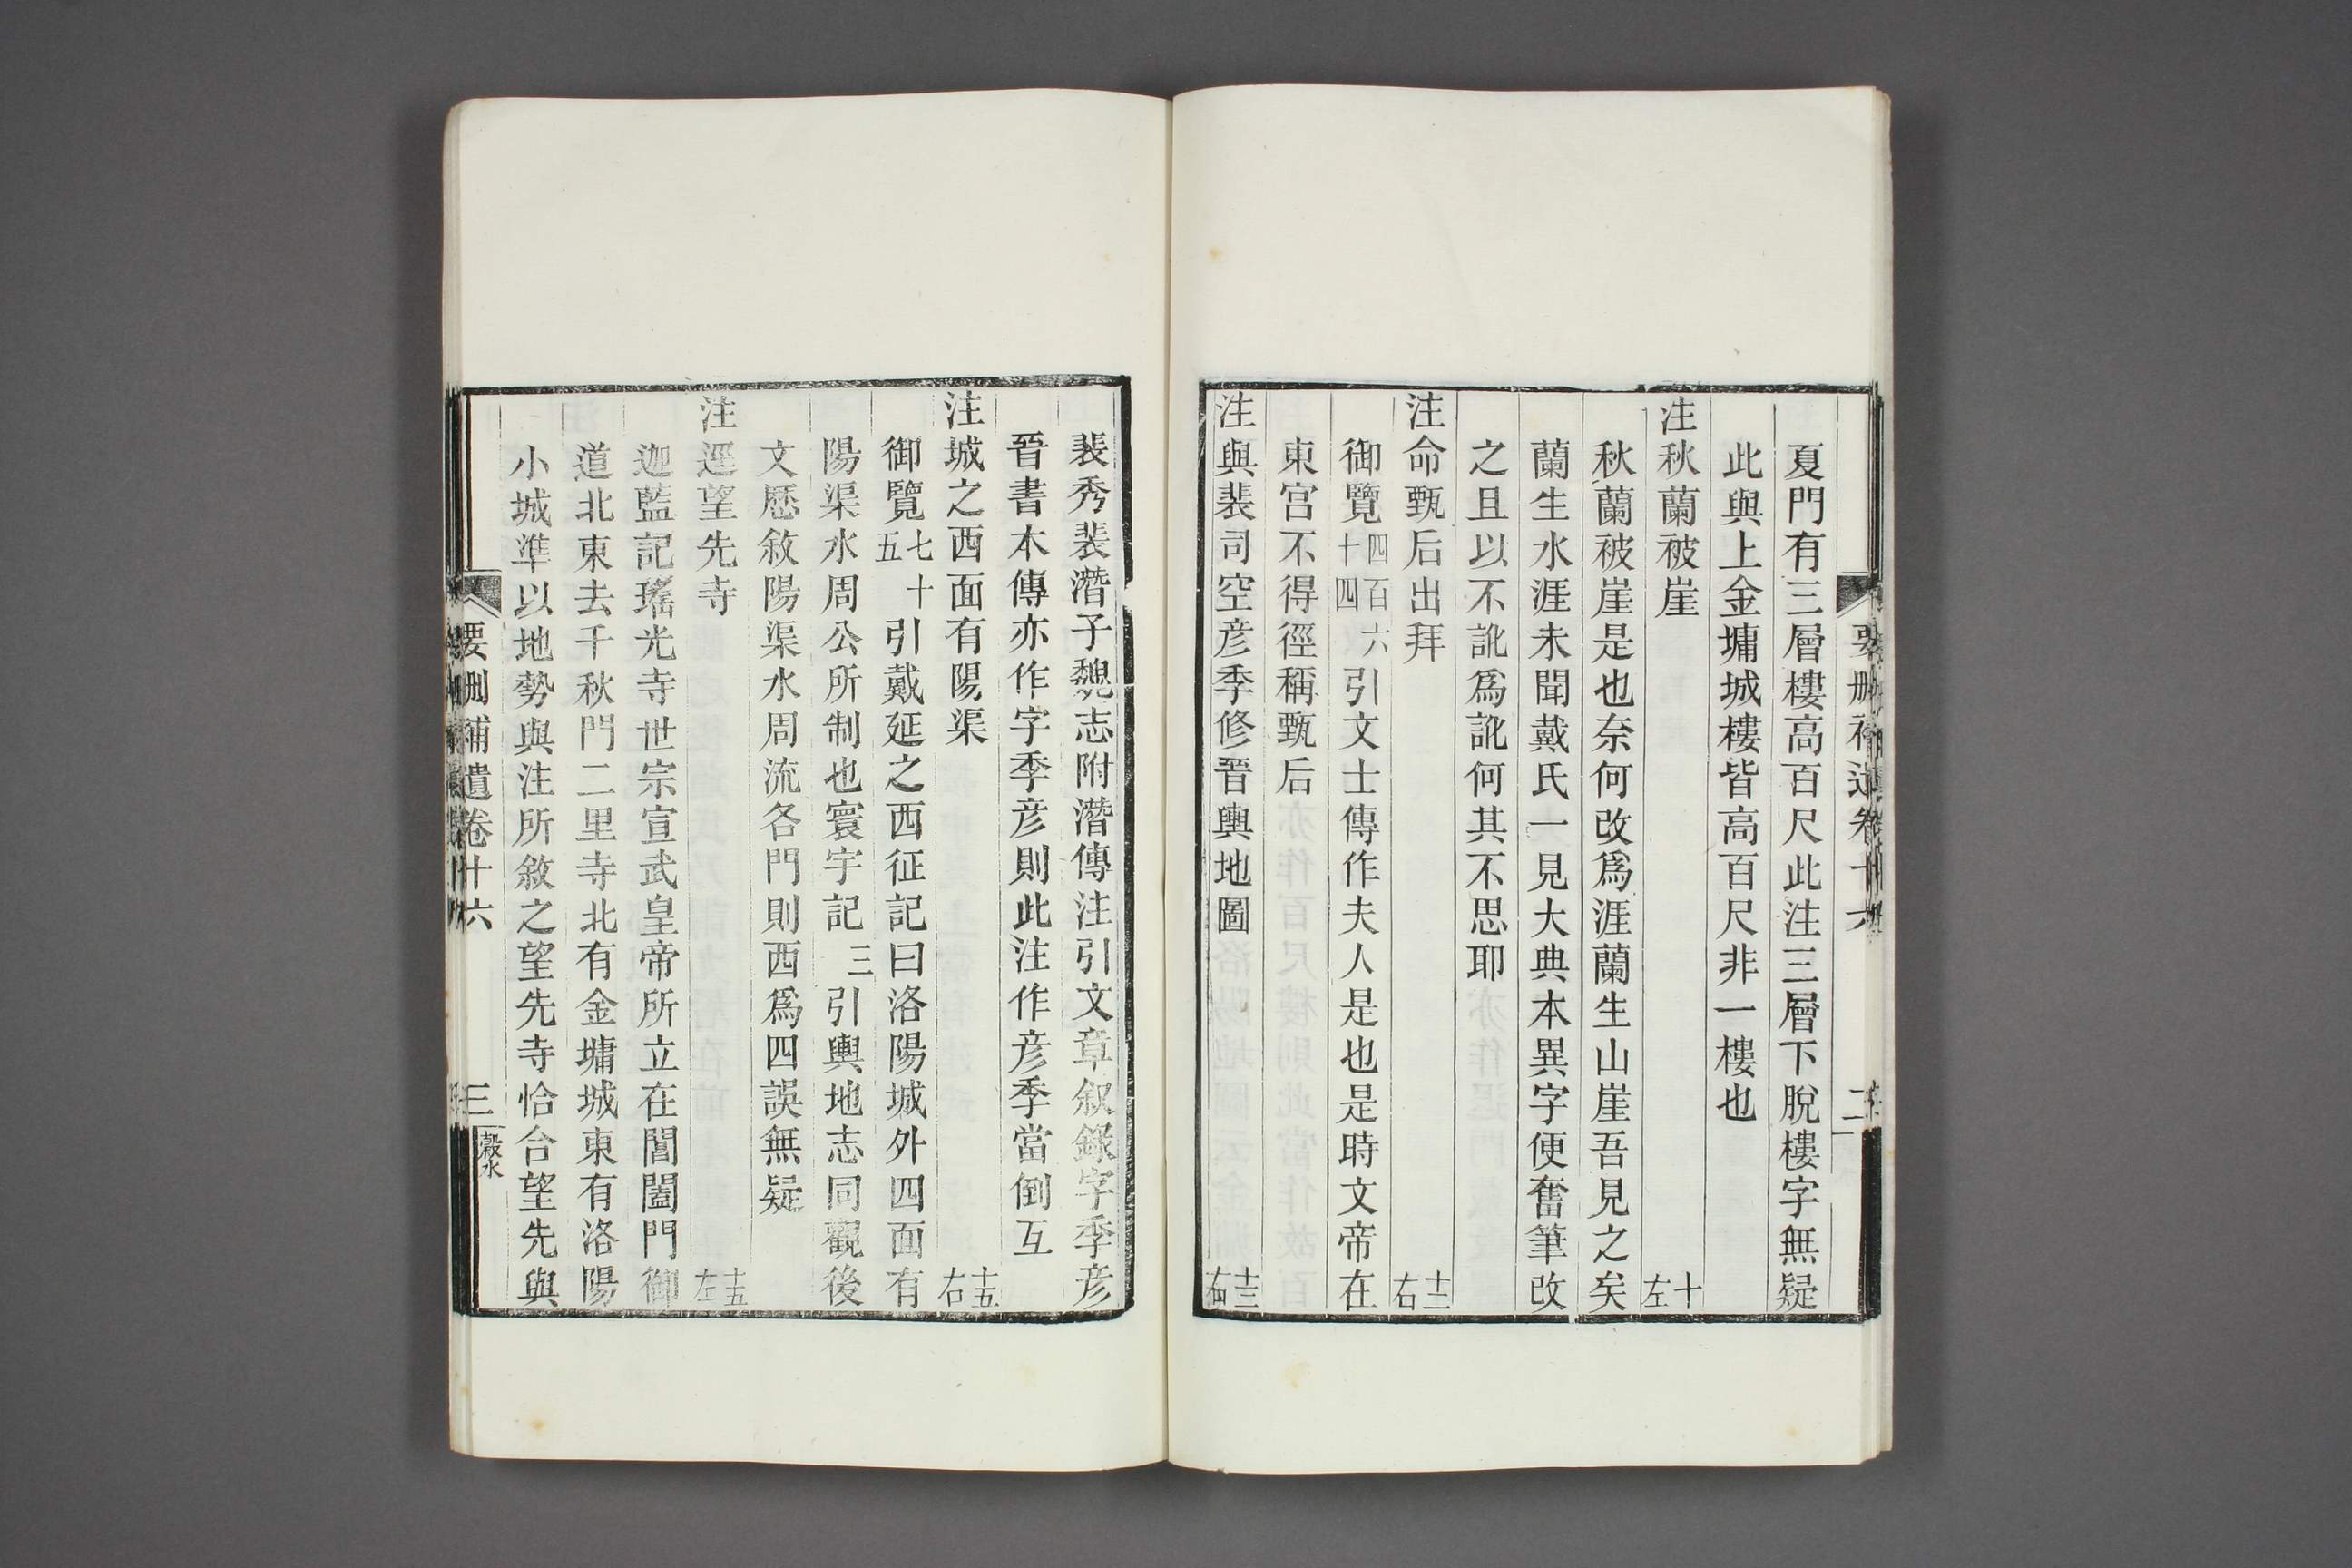 要刪補遺卷十六
二
夏門有三層樓高百尺此注三層下脫樓字無疑
此與上金墉城樓皆高百尺非一樓也
注秋蘭被崖 十左
秋蘭被崖是也奈何改爲涯蘭生山崖吾見之矣
蘭生水涯未聞戴氏一見大典本異字便奮筆改
之且以不訛爲訛何其不思耶
注命甄后出拜 十三右
御覽四百六十四引文士傳作夫人是也是時文帝在
東宮不得徑稱甄后
注與裴司空彦季修晉輿地圖 十三右
裴秀裴潛子魏志附潛傳注引文章叙錄字季彦
晉書本傳亦作字季彦則此注作彦季當倒互
注城之西面有陽渠 十五右
御覽七十五引戴延之西征記曰洛陽城外四面有
陽渠水周公所制也寰宇記三引輿地志同觀後
文歷敘陽渠水周流各門則西爲四誤無疑
注逕望先寺 十五左
迦藍記瑤光寺世宗宣武皇帝所立在閶闔門御
道北東去千秋門二里寺北有金墉城東有洛陽
小城準以地勢與注所敘之望先寺恰合望先與
要刪補遺卷十六
三
穀水